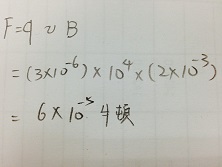 F=q v B
=(3×10⁻⁶)×10⁴×(2×10⁻³)
= 6×10⁻⁵ 牛頓